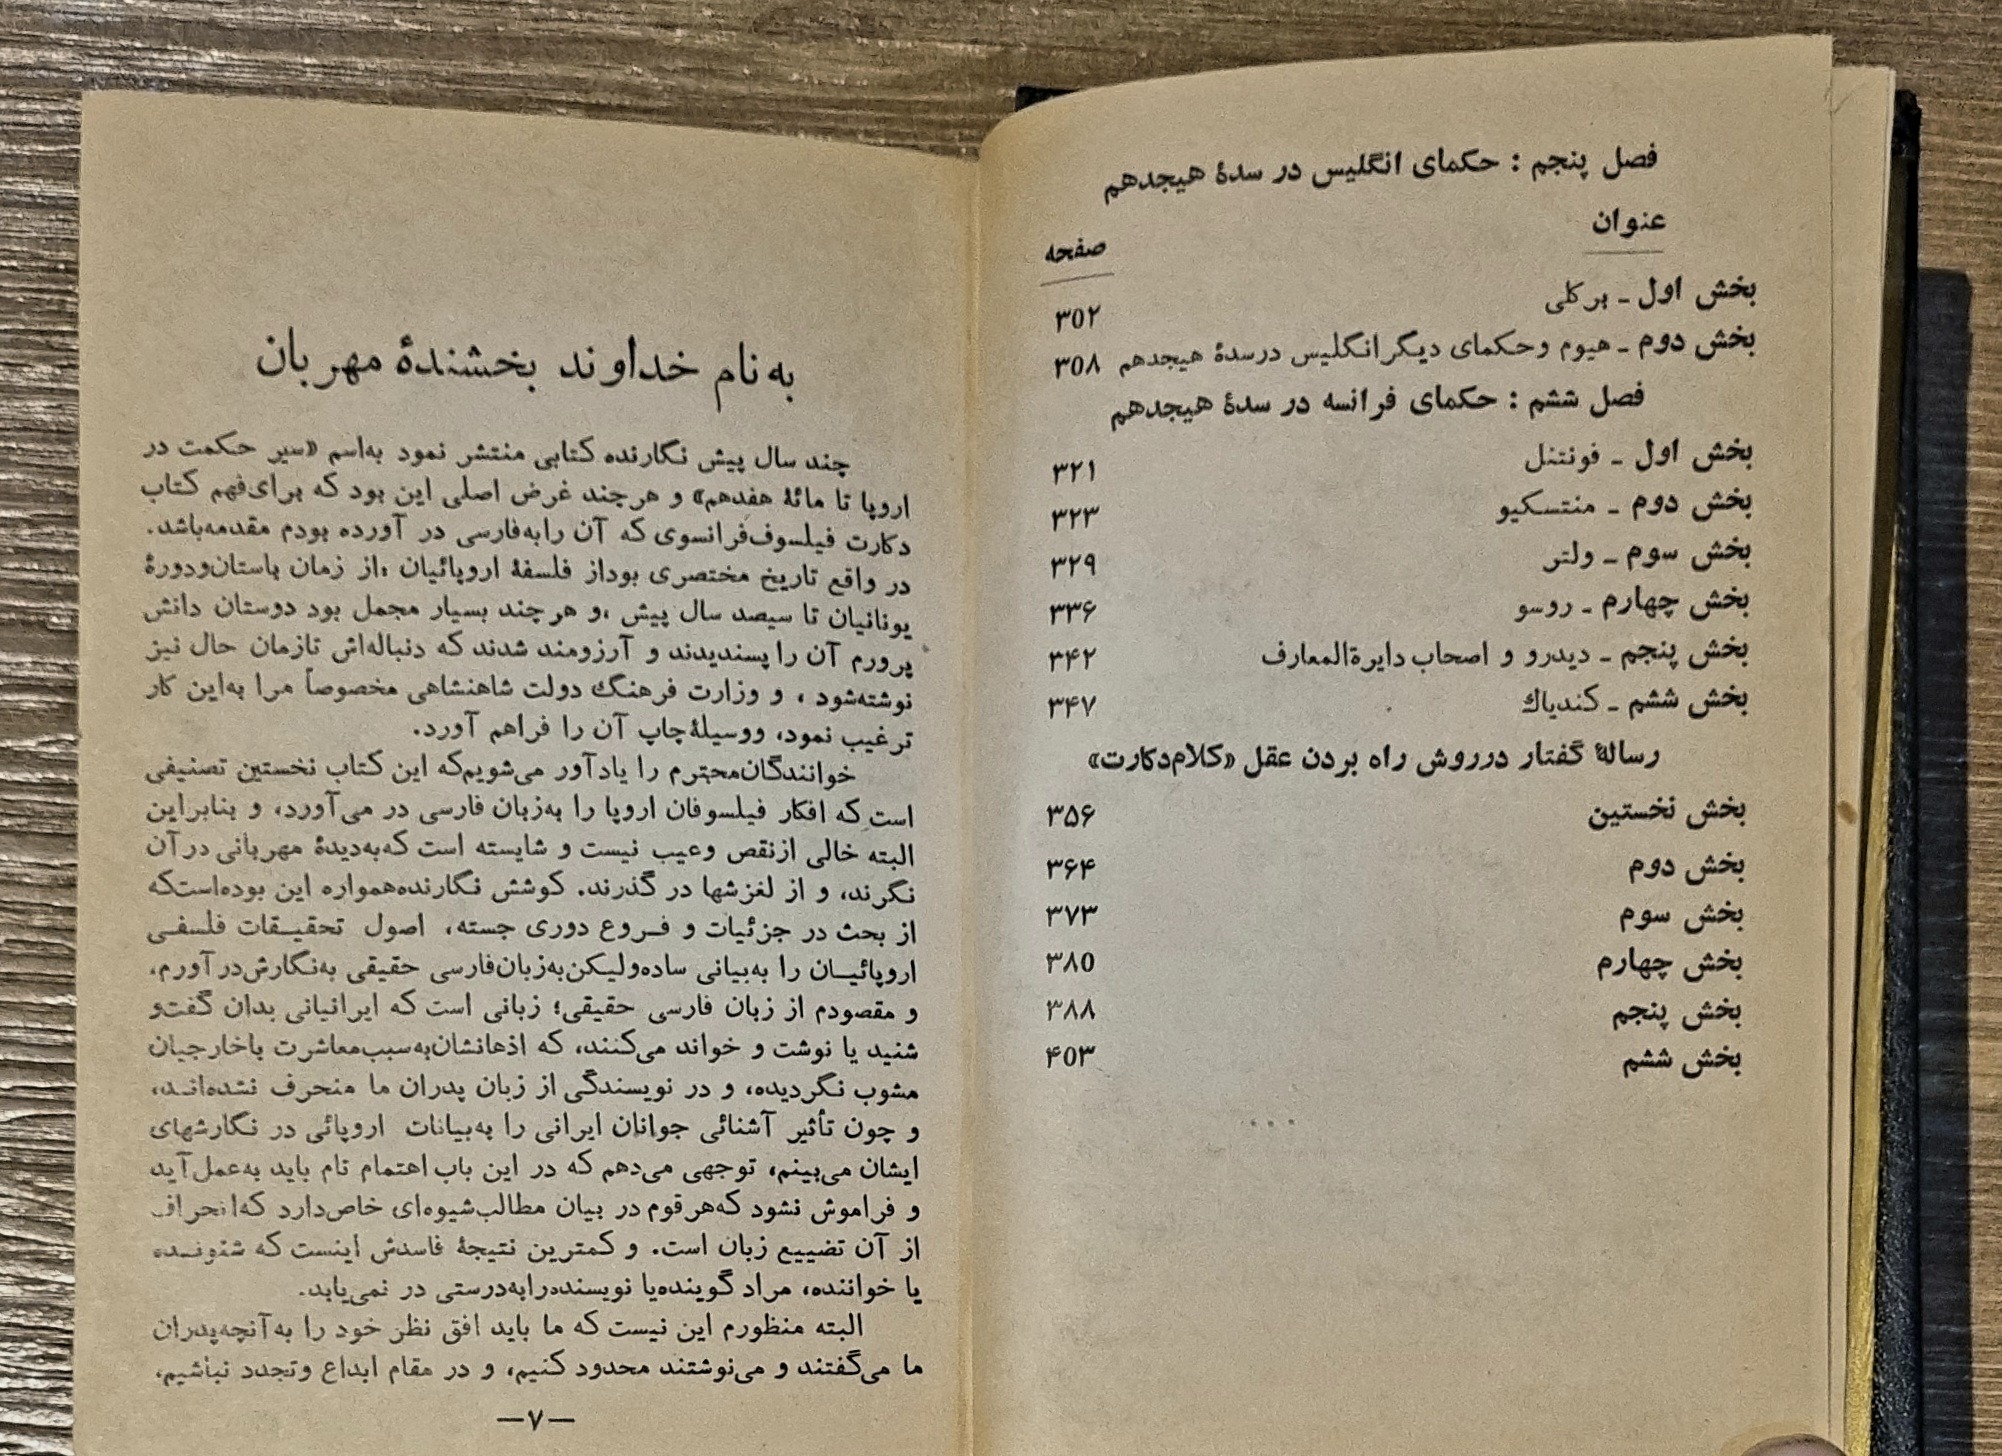 فصل پنجم : حکمای انگلیس در سدهٔ هیجدهم
عنوان
صفحه
بخش اول ـ برکلی ۳۰۲
بخش دوم ـ هیوم و حکمای دیگر انگلیس در سدهٔ هیجدهم ۳۰۸
فصل ششم : حکمای فرانسه در سدهٔ هیجدهم
بخش اول ـ فونتنل ۳۲۱
بخش دوم ـ منتسکیو ۳۲۳
بخش سوم ـ ولتر ۳۲۹
بخش چهارم ـ روسو ۳۳۶
بخش پنجم ـ دیدرو و اصحاب دایرةالمعارف ۳۴۲
بخش ششم ـ کندیاك ۳۴۷
رسالهٔ گفتار در روش راه بردن عقل «کلام دکارت»
بخش نخستین ۳۵۶
بخش دوم ۳۶۴
بخش سوم ۳۷۳
بخش چهارم ۳۸۰
بخش پنجم ۳۸۸
بخش ششم ۴۰۳
به نام خداوند بخشندهٔ مهربان
چند سال پیش نگارنده کتابی منتشر نمود به‌اسم «سیر حکمت در
اروپا تا مائهٔ هفدهم» و هرچند غرض اصلی این بود که برای فهم کتاب
دکارت فیلسوف فرانسوی که آن را به فارسی در آورده بودم مقدمه باشد.
در واقع تاریخ مختصری بود از فلسفهٔ اروپائیان ،از زمان باستان و دورهٔ
یونانیان تا سیصد سال پیش ،و هرچند بسیار مجمل بود دوستان دانش
پرورم آن را پسندیدند و آرزومند شدند که دنباله‌اش تا زمان حال نیز
نوشته شود ، و وزارت فرهنگ دولت شاهنشاهی مخصوصاً مرا به‌این کار
ترغیب نمود، و وسیلهٔ چاپ آن را فراهم آورد.
خوانندگان محترم را یادآور می‌شویم که این کتاب نخستین تصنیفی
است که افکار فیلسوفان اروپا را به‌زبان فارسی در می‌آورد، و بنابراین
البته خالی از نقص و عیب نیست و شایسته است که به‌دیدهٔ مهربانی در آن
نگرند، و از لغزشها در گذرند. کوشش نگارنده همواره این بوده است که
از بحث در جزئیات و فـروع دوری جسته، اصول تحقیـقات فلسفـی
اروپائیـان را به‌بیانی ساده و لیکن به‌زبان فارسی حقیقی به‌نگارش در آورم،
و مقصودم از زبان فارسی حقیقی؛ زبانی است که ایرانیانی بدان گفت و
شنید یا نوشت و خواند می‌کنند، که اذهانشان به‌سبب معاشرت با خارجیان
مشوب نگردیده، و در نویسندگی از زبان پدران ما منحرف نشده‌انـد،
و چون تأثیر آشنائی جوانان ایرانی را به‌بیانات اروپائی در نگارشهای
ایشان می‌بینم، توجهی می‌دهم که در این باب اهتمام تام باید به‌عمل آید
و فراموش نشود که هر قوم در بیان مطالب شیوه‌ای خاص دارد که انحراف
از آن تضییع زبان است. و کمترین نتیجهٔ فاسدش اینست که شنونـده
یا خواننده، مراد گوینده یا نویسنده را به‌درستی در نمی‌یابد.
البته منظورم این نیست که ما باید افق نظر خود را به‌آنچه پدران
ما می‌گفتند و می‌نوشتند محدود کنیم، و در مقام ابداع و تجدد نباشیم،
—۷—